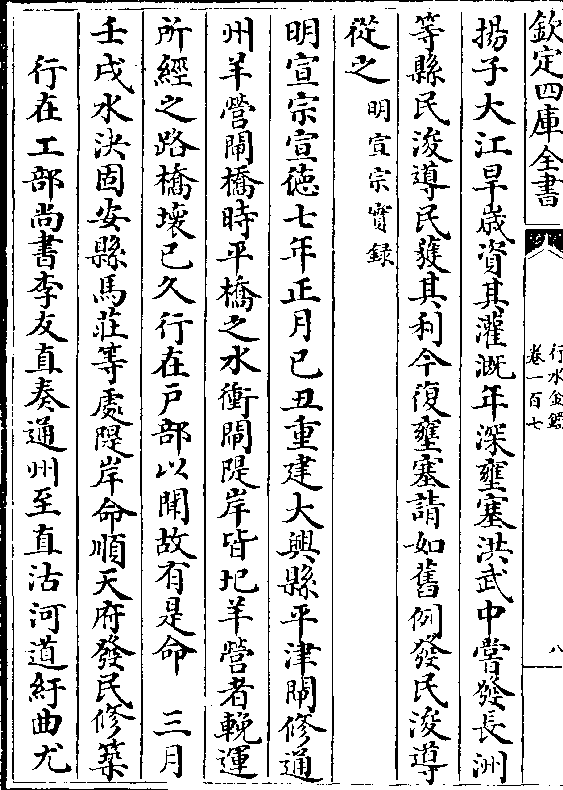 欽定四庫全書
行水金鑑
卷一百七
八
揚子大江旱歲資其灌溉年深壅塞洪武中嘗發長洲
等縣民浚導民獲其利今復壅塞請如舊例發民浚導
從之明宣宗實録
明宣宗宣德七年正月己丑重建大興縣平津閘修通
州羊營閘橋時平橋之水衝閘隄岸皆圮羊營者輓運
所經之路橋壞已久行在戸部以聞故有是命 三月
壬戌水決固安縣馬莊等處隄岸命順天府發民修築
行在工部尚書李友直奏通州至直沽河道紆曲尤